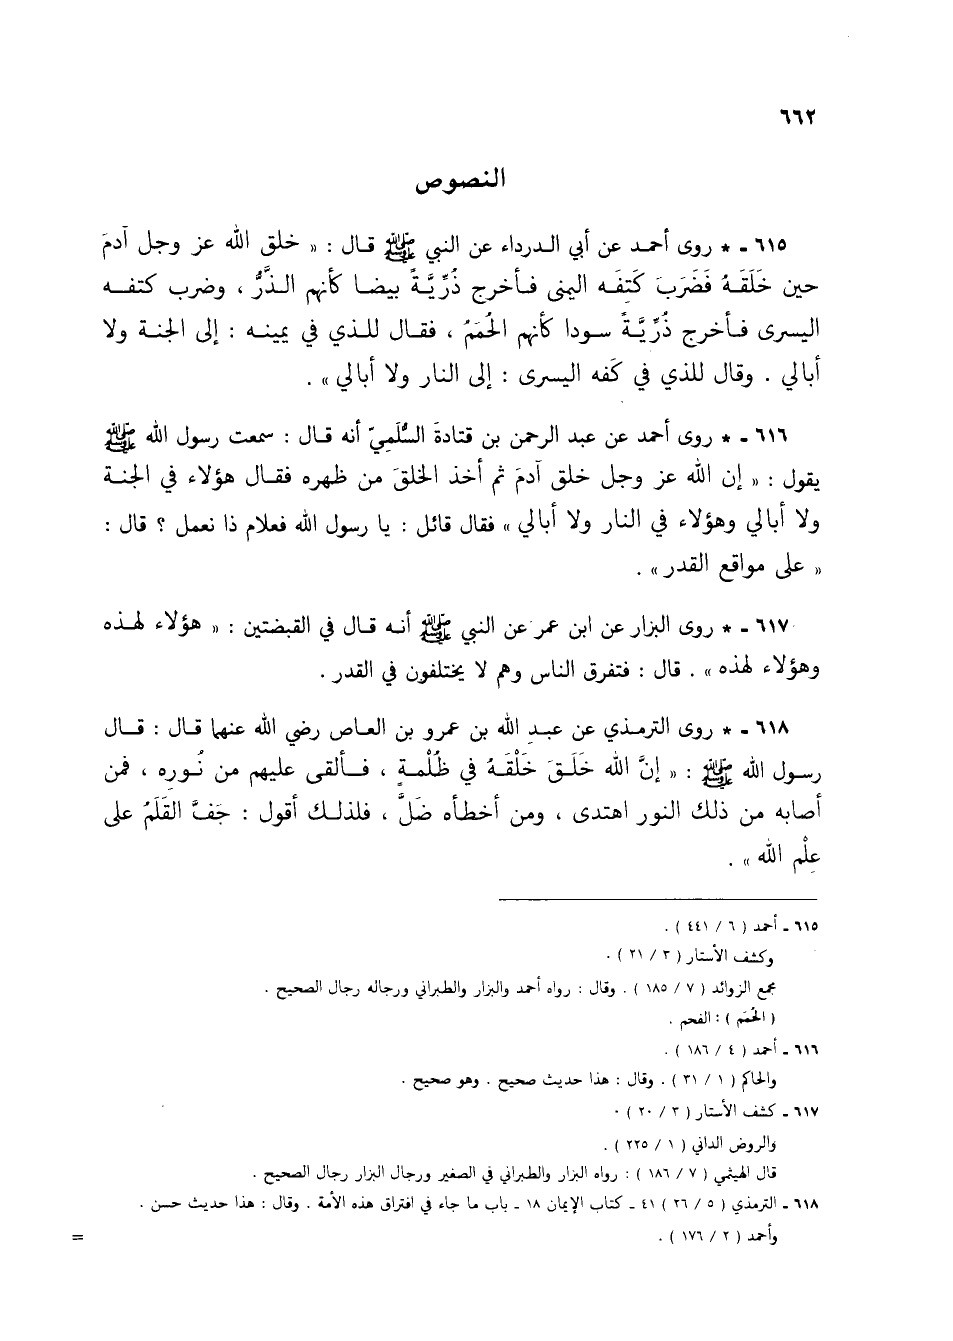 ٦٦٢
النصوص
٦١٥ - * روى أحمد عن أبي الدرداء عن النبي ﷺ قال : « خلق الله عز وجل آدمَ
حين خَلَقَهُ فَضَرَبَ كَتِفَه اليمنى فأخرج ذُرِّيَّةً بيضا كأنهم الذَّرُّ ، وضرب كتفه
اليسرى فأخرج ذُرِّيَّةً سودا كأنهم الحُمَمُ ، فقال للذي في يمينه : إلى الجنة ولا
أبالي . وقال للذي في كَفه اليسرى : إلى النار ولا أبالي » .
٦١٦ - * روى أحمد عن عبد الرحمن بن قتادةَ السُّلَمِيّ أنه قال : سمعت رسول الله ﷺ
يقول : « إن الله عز وجل خلق آدمَ ثم أخذ الخلقَ من ظهره فقال هؤلاء في الجنة
ولا أبالي وهؤلاء في النار ولا أبالي » فقال قائل : يا رسول الله فعلام ذا نعمل ؟ قال :
« على مواقع القدر » .
٦١٧ - * روى البزار عن ابن عمر عن النبي ﷺ أنه قال في القبضتين : « هؤلاء لهذه
وهؤلاء لهذه » . قال : فتفرق الناس وهم لا يختلفون في القدر .
٦١٨ - * روى الترمذي عن عبدِ الله بن عمرو بن العاص رضي الله عنهما قال : قال
رسول الله ﷺ : « إنَّ الله خَلَقَ خَلْقَهُ في ظُلْمةٍ ، فألقى عليهم من نُورِه ، فمن
أصابه من ذلك النور اهتدى ، ومن أخطأه ضَلَّ ، فلذلك أقول : جَفَّ القَلَمُ على
عِلْمِ الله » .
٦١٥ - أحمد ( ٦ / ٤٤١ ) .
وكشف الأستار ( ٣ / ٢١ ) .
مجمع الزوائد ( ٧ / ١٨٥ ) . وقال : رواه أحمد والبزار والطبراني ورجاله رجال الصحيح .
( الحُمَم ) : الفحم .
٦١٦ - أحمد ( ٤ / ١٨٦ ) .
والحاكم ( ١ / ٣١ ) . وقال : هذا حديث صحيح . وهو صحيح .
٦١٧ - كشف الأستار ( ٣ / ٢٠ ) .
والروض الداني ( ١ / ٢٢٥ ) .
قال الهيثمي ( ٧ / ١٨٦ ) : رواه البزار والطبراني في الصغير ورجال البزار رجال الصحيح .
٦١٨ - الترمذي ( ٥ / ٢٦ ) ٤١ - كتاب الإيمان ١٨ - باب ما جاء في افتراق هذه الأمة . وقال : هذا حديث حسن .
وأحمد ( ٢ / ١٧٦ ) .
=